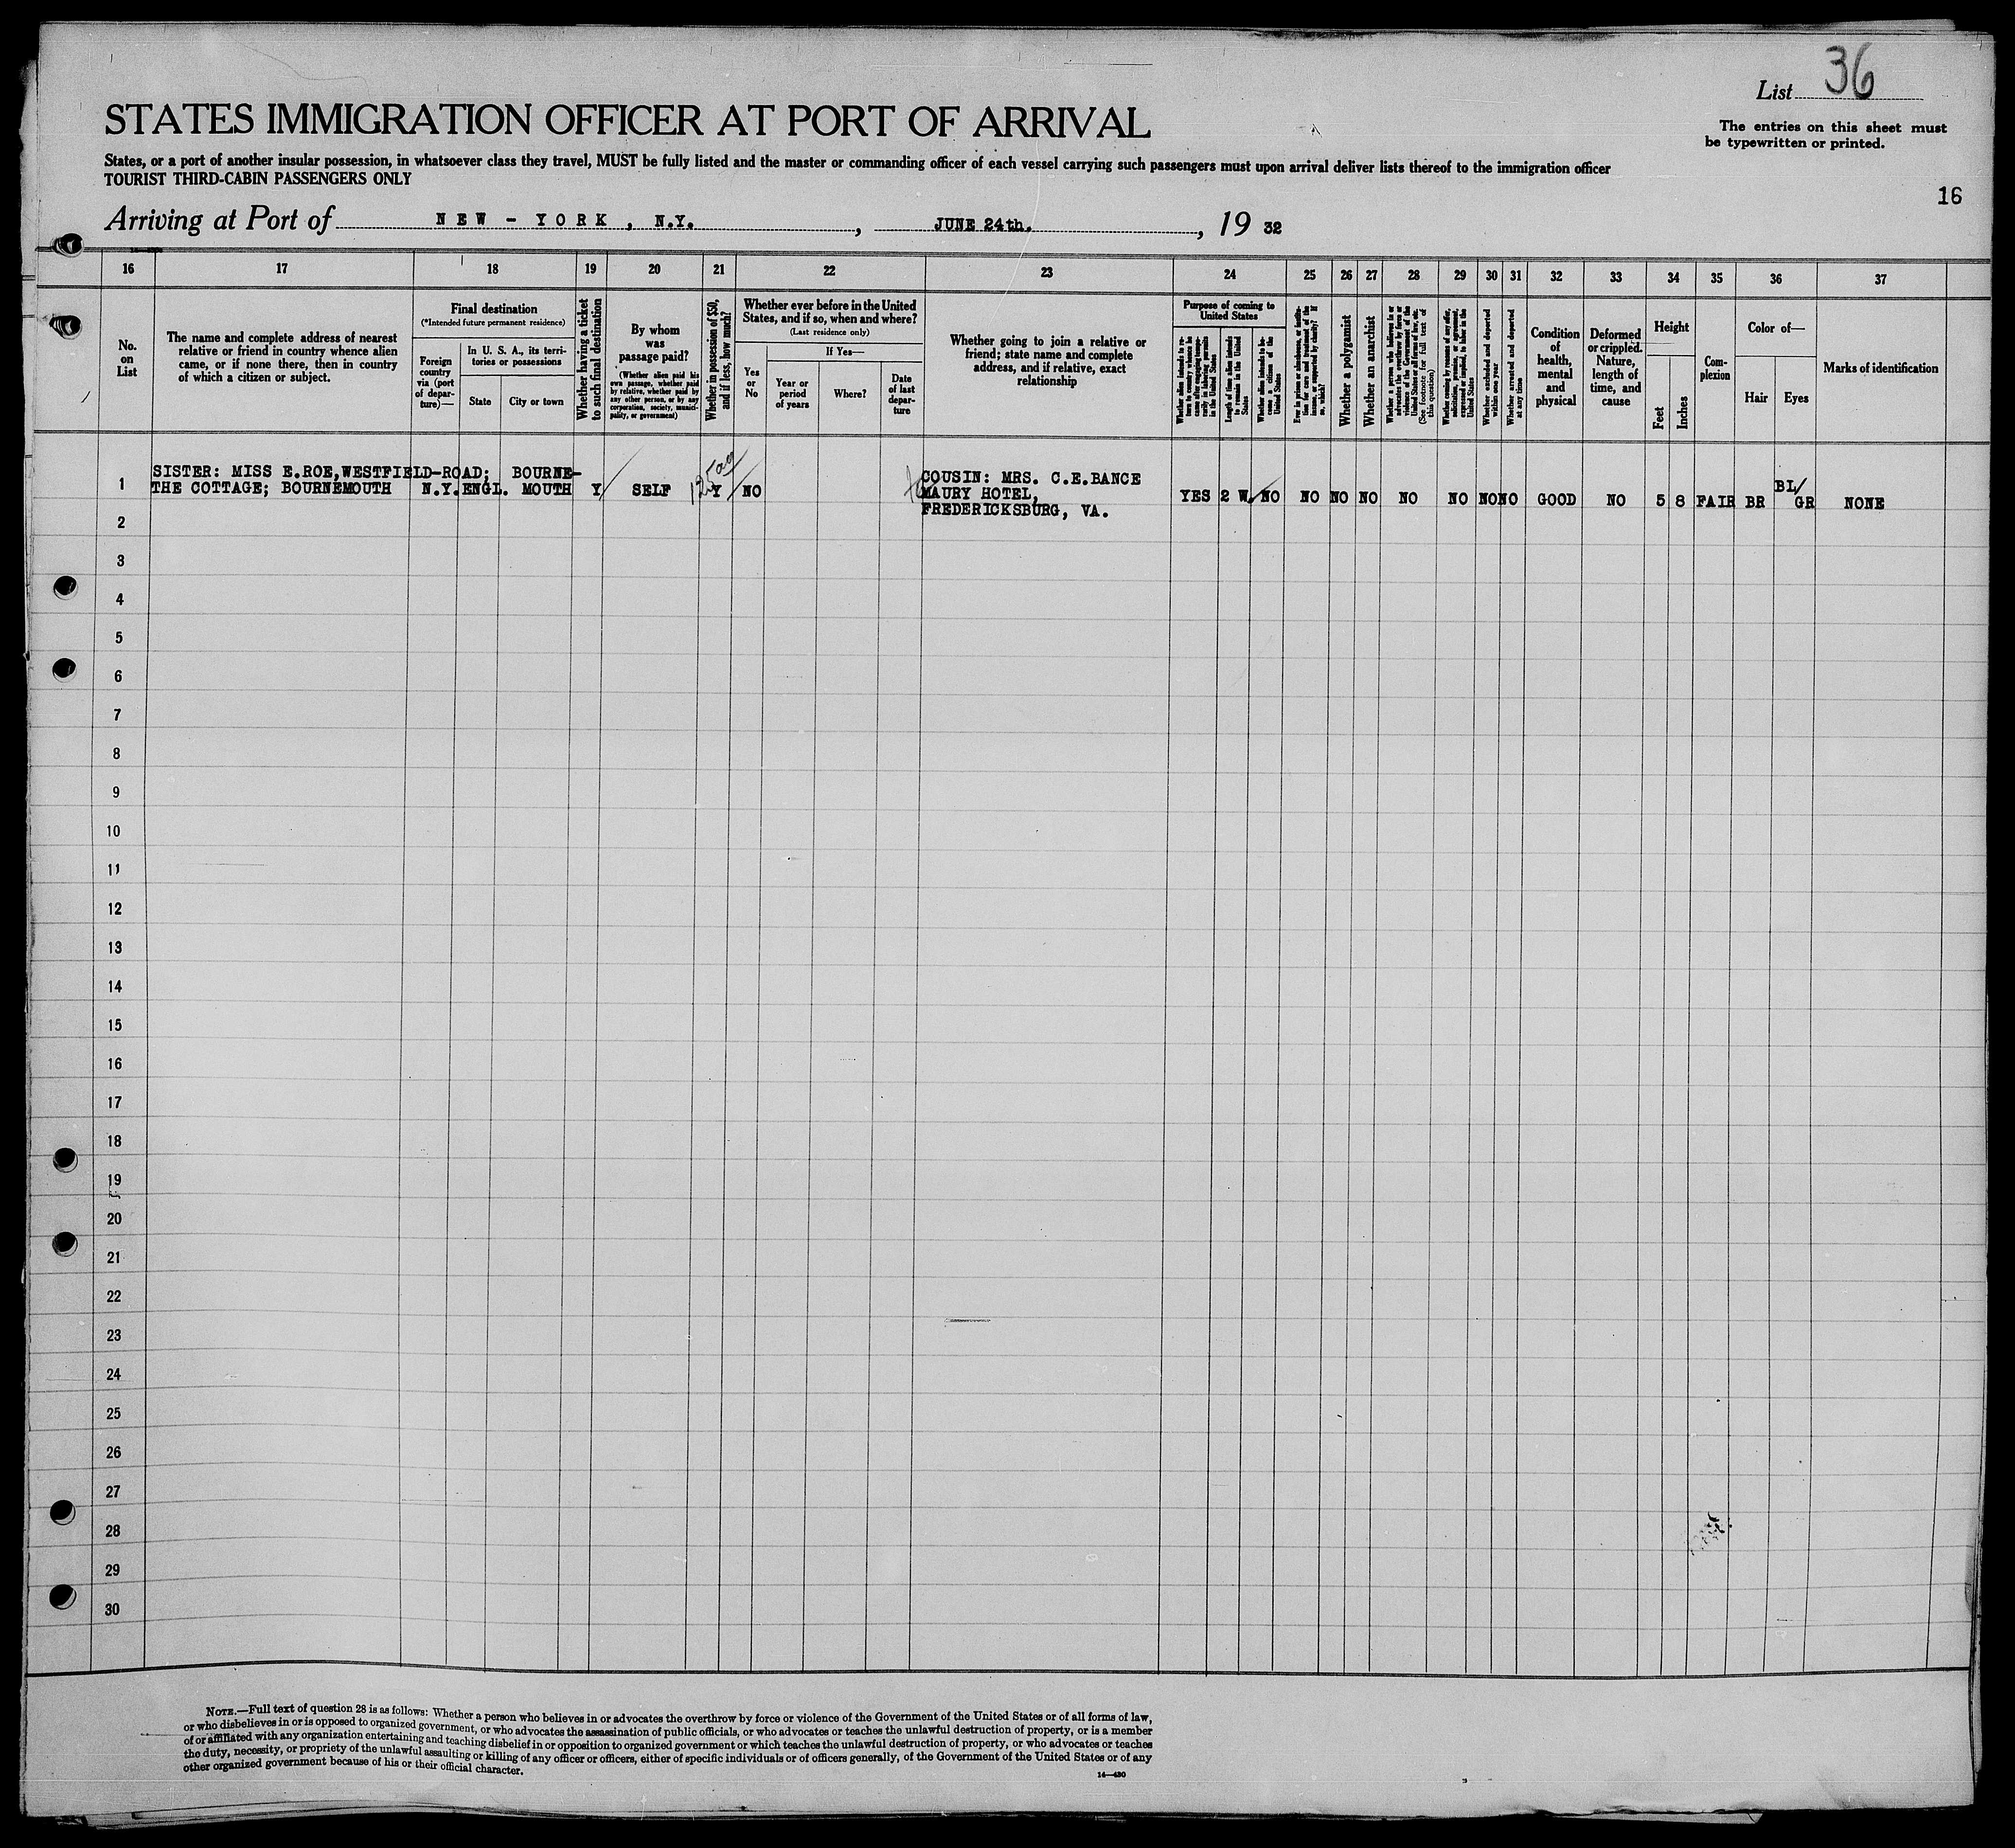 List 36
STATES IMMIGRATION OFFICER AT PORT OF ARRIVAL
The entries on this sheet must
be typewritten or printed.
States, or a port of another insular possession, in whatsoever class they travel, MUST be fully listed and the master or commanding officer of each vessel carrying such passengers must upon arrival deliver lists thereof to the immigration officer
TOURIST THIRD-CABIN PASSENGERS ONLY
16
Arriving at Port of NEW - YORK, N.Y., JUNE 24th., 19 32
16 17 18 19 20 21 22 23 24 25 26 27 28 29 30 31 32 33 34 35 36 37
No.
on
List
The name and complete address of nearest
relative or friend in country whence alien
came, or if none there, then in country
of which a citizen or subject.
Final destination
(*Intended future permanent residence)
Foreign
country
via (port
of depar-
ture)—
In U. S. A., its terri-
tories or possessions
State
City or town
Whether having a ticket
to such final destination
By whom
was
passage paid?
(Whether alien paid his
own passage, whether paid
by relative, whether paid by
any other person, or by any
corporation, society, munici-
pality, or government)
Whether in possession of $50,
and if less, how much?
Whether ever before in the United
States, and if so, when and where?
(Last residence only)
Yes
or
No
If Yes—
Year or
period
of years
Where?
Date
of last
depar-
ture
Whether going to join a relative or
friend; state name and complete
address, and if relative, exact
relationship
Purpose of coming to
United States
Whether alien intends to re-
turn to country whence he
came after engaging tempo-
rarily in laboring pursuits
in the United States
Length of time alien intends
to remain in the United
States
Whether alien intends to be-
come a citizen of the
United States
Ever in prison or almshouse, or institu-
tion for care and treatment of the
insane, or supported by charity? If
so, which?
Whether a polygamist
Whether an anarchist
Whether a person who believes in or
advocates the overthrow by force or
violence of the Government of the
United States or all forms of law, etc.
(See footnote for full text of
this question)
Whether coming by reason of any offer,
solicitation, promise, or agreement,
expressed or implied, to labor in the
United States
Whether excluded and deported
within one year
Whether arrested and deported
at any time
Condition
of
health,
mental
and
physical
Deformed
or crippled.
Nature,
length of
time, and
cause
Height
Feet
Inches
Com-
plexion
Color of—
Hair
Eyes
Marks of identification
1 SISTER: MISS E.ROE,WESTFIELD-ROAD; BOURNE-
THE COTTAGE; BOURNEMOUTH N.Y. ENGL. MOUTH Y SELF 125 Y NO
COUSIN: MRS. C.E.BANCE
MAURY HOTEL,
FREDERICKSBURG, VA.
YES 2 W. NO NO NO NO NO NO NO NO GOOD NO 5 8 FAIR BR BL/
GR NONE
2
3
4
5
6
7
8
9
10
11
12
13
14
15
16
17
18
19
20
21
22
23
24
25
26
27
28
29
30
NOTE.—Full text of question 28 is as follows: Whether a person who believes in or advocates the overthrow by force or violence of the Government of the United States or of all forms of law,
or who disbelieves in or is opposed to organized government, or who advocates the assassination of public officials, or who advocates or teaches the unlawful destruction of property, or is a member
of or affiliated with any organization entertaining and teaching disbelief in or opposition to organized government or which teaches the unlawful destruction of property, or who advocates or teaches
the duty, necessity, or propriety of the unlawful assaulting or killing of any officer or officers, either of specific individuals or of officers generally, of the Government of the United States or of any
other organized government because of his or their official character.
14—430